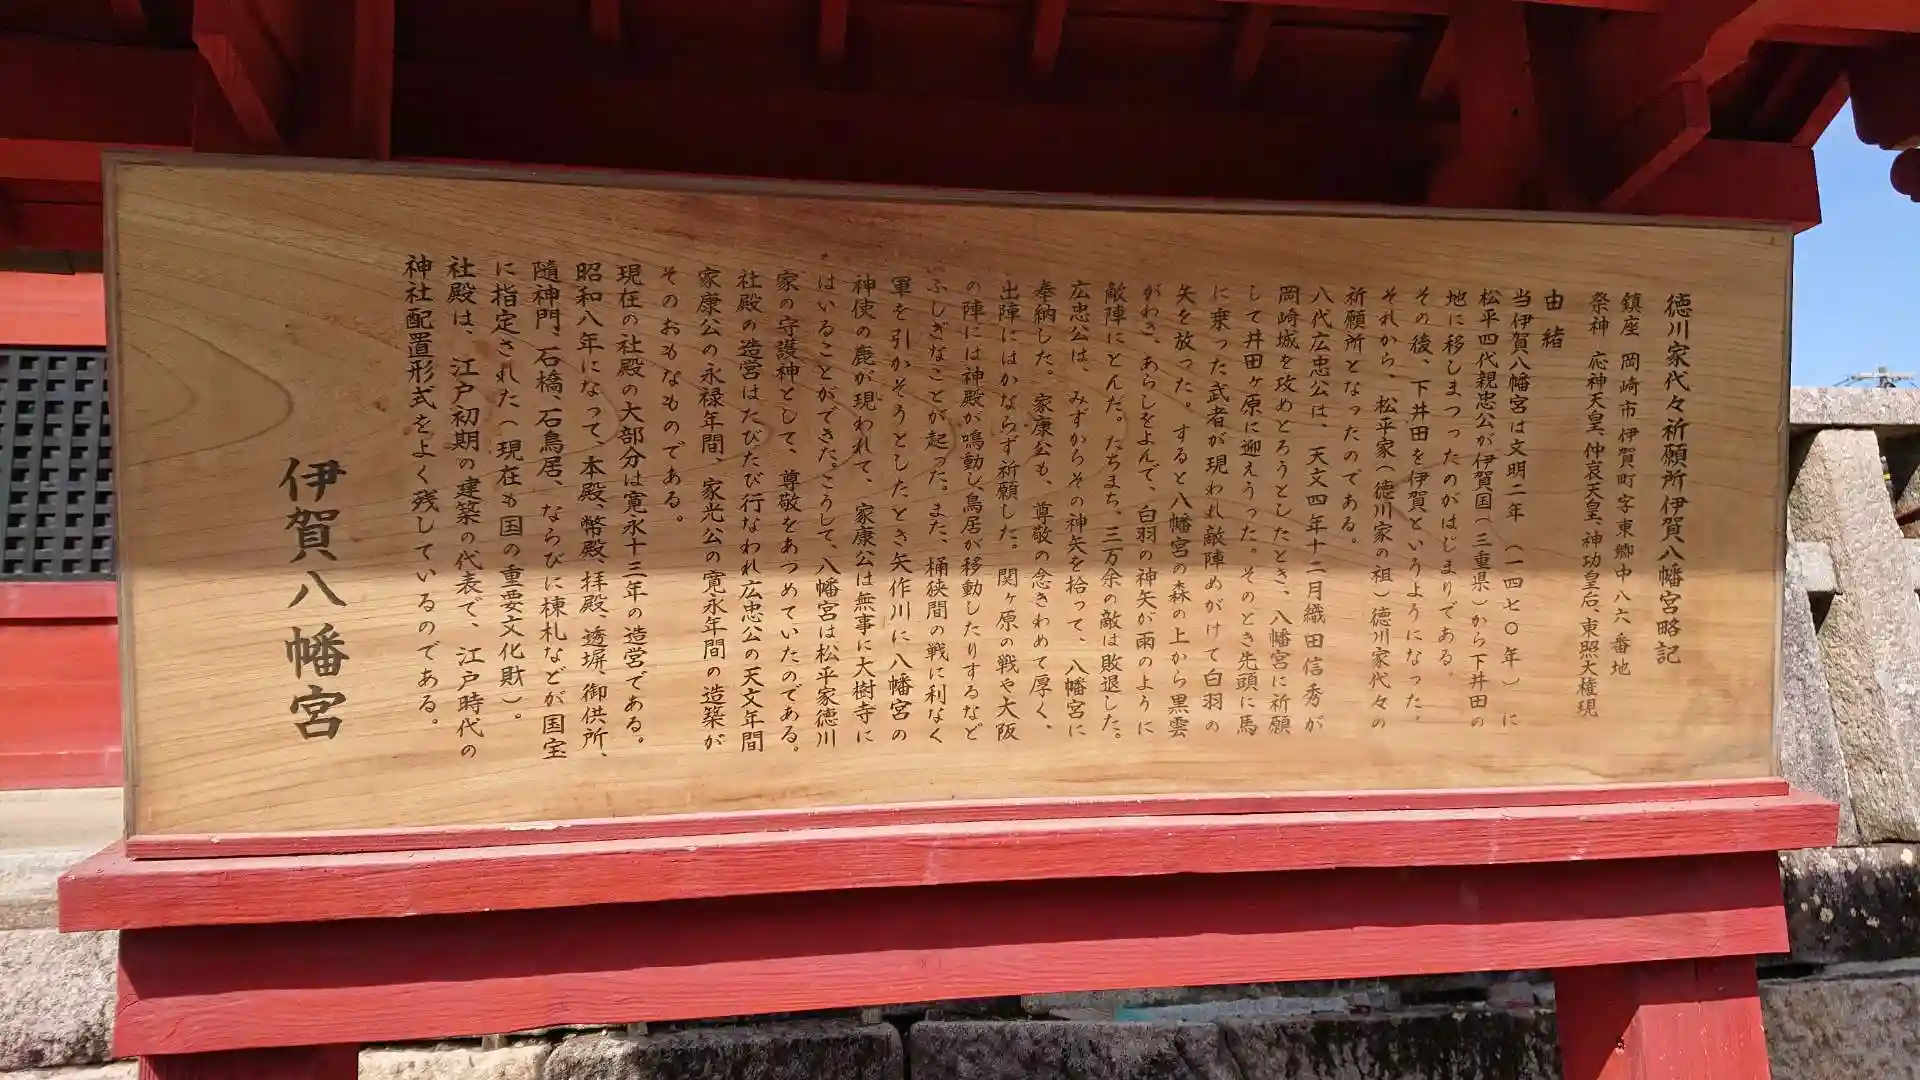 徳川家代々祈願所伊賀八幡宮略記
鎮座 岡崎市伊賀町字東郷中八六番地
祭神 応神天皇、仲哀天皇、神功皇后、東照大権現
由緒
当伊賀八幡宮は文明二年(一四七〇年)に
松平四代親忠公が伊賀国(三重県)から下井田の
地に移しまつったのがはじまりである。
その後、下井田を伊賀というようになった。
それから、松平家(徳川家の祖)徳川家代々の
祈願所となったのである。
八代広忠公は、天文四年十二月織田信秀が
岡崎城を攻めとろうとしたとき、八幡宮に祈願
して井田ヶ原に迎えうった。そのとき先頭に馬
に乗った武者が現われ敵陣めがけて白羽の
矢を放った。すると八幡宮の森の上から黒雲
がわき、あらしをよんで、白羽の神矢が雨のように
敵陣にとんだ。たちまち、三万余の敵は敗退した。
広忠公は、みずからその神矢を拾って、八幡宮に
奉納した。家康公も、尊敬の念きわめて厚く、
出陣にはかならず祈願した。関ヶ原の戦や大阪
の陣には神殿が鳴動し鳥居が移動したりするなど
ふしぎなことが起った。また、桶狭間の戦に利なく
軍を引かそうとしたとき矢作川に八幡宮の
神使の鹿が現われて、家康公は無事に大樹寺に
はいることができた。こうして、八幡宮は松平家徳川
家の守護神として、尊敬をあつめていたのである。
社殿の造営はたびたび行なわれ広忠公の天文年間
家康公の永禄年間、家光公の寛永年間の造築が
そのおもなものである。
現在の社殿の大部分は寛永十三年の造営である。
昭和八年になって、本殿、幣殿、拝殿、透塀、御供所、
隨神門、石橋、石鳥居、ならびに棟札などが国宝
に指定された(現在も国の重要文化財)。
社殿は、江戸初期の建築の代表で、江戸時代の
神社配置形式をよく残しているのである。
伊賀八幡宮